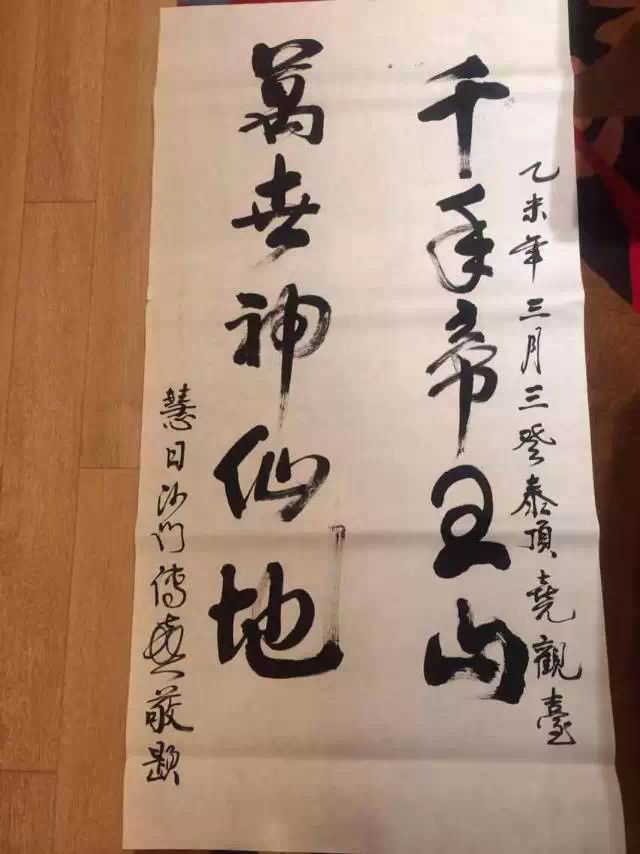 乙未年三月三登泰頂堯觀臺
千年帝王山
萬世神仙地
慧日沙門傳敬題